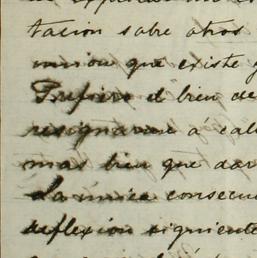 tacion sobre otros
union que existe y
Prefiero el bien de
resignarme á cal
mas bien que dar
La unica consecu
reflexion siguiente